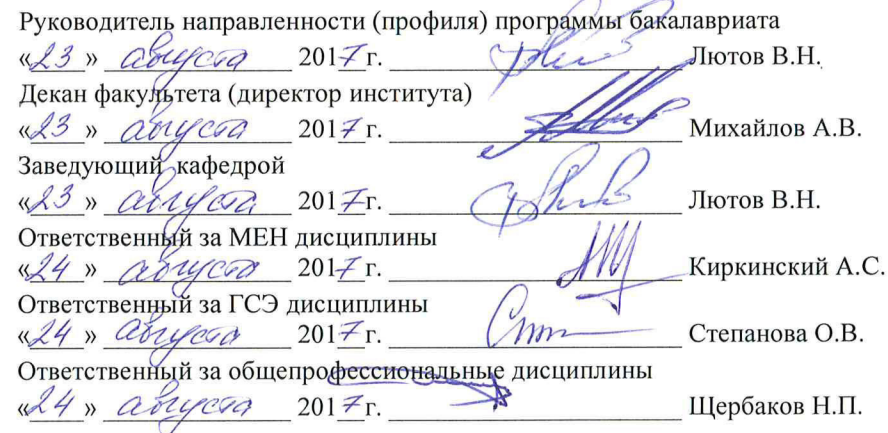 Руководитель направленности (профиля) программы бакалавриата
«23» августа 2017 г. Лютов В.Н.
Декан факультета (директор института)
«23» августа 2017 г. Михайлов А.В.
Заведующий кафедрой
«23» августа 2017 г. Лютов В.Н.
Ответственный за МЕН дисциплины
«24» августа 2017 г. Киркинский А.С.
Ответственный за ГСЭ дисциплины
«24» августа 2017 г. Степанова О.В.
Ответственный за общепрофессиональные дисциплины
«24» августа 2017 г. Щербаков Н.П.